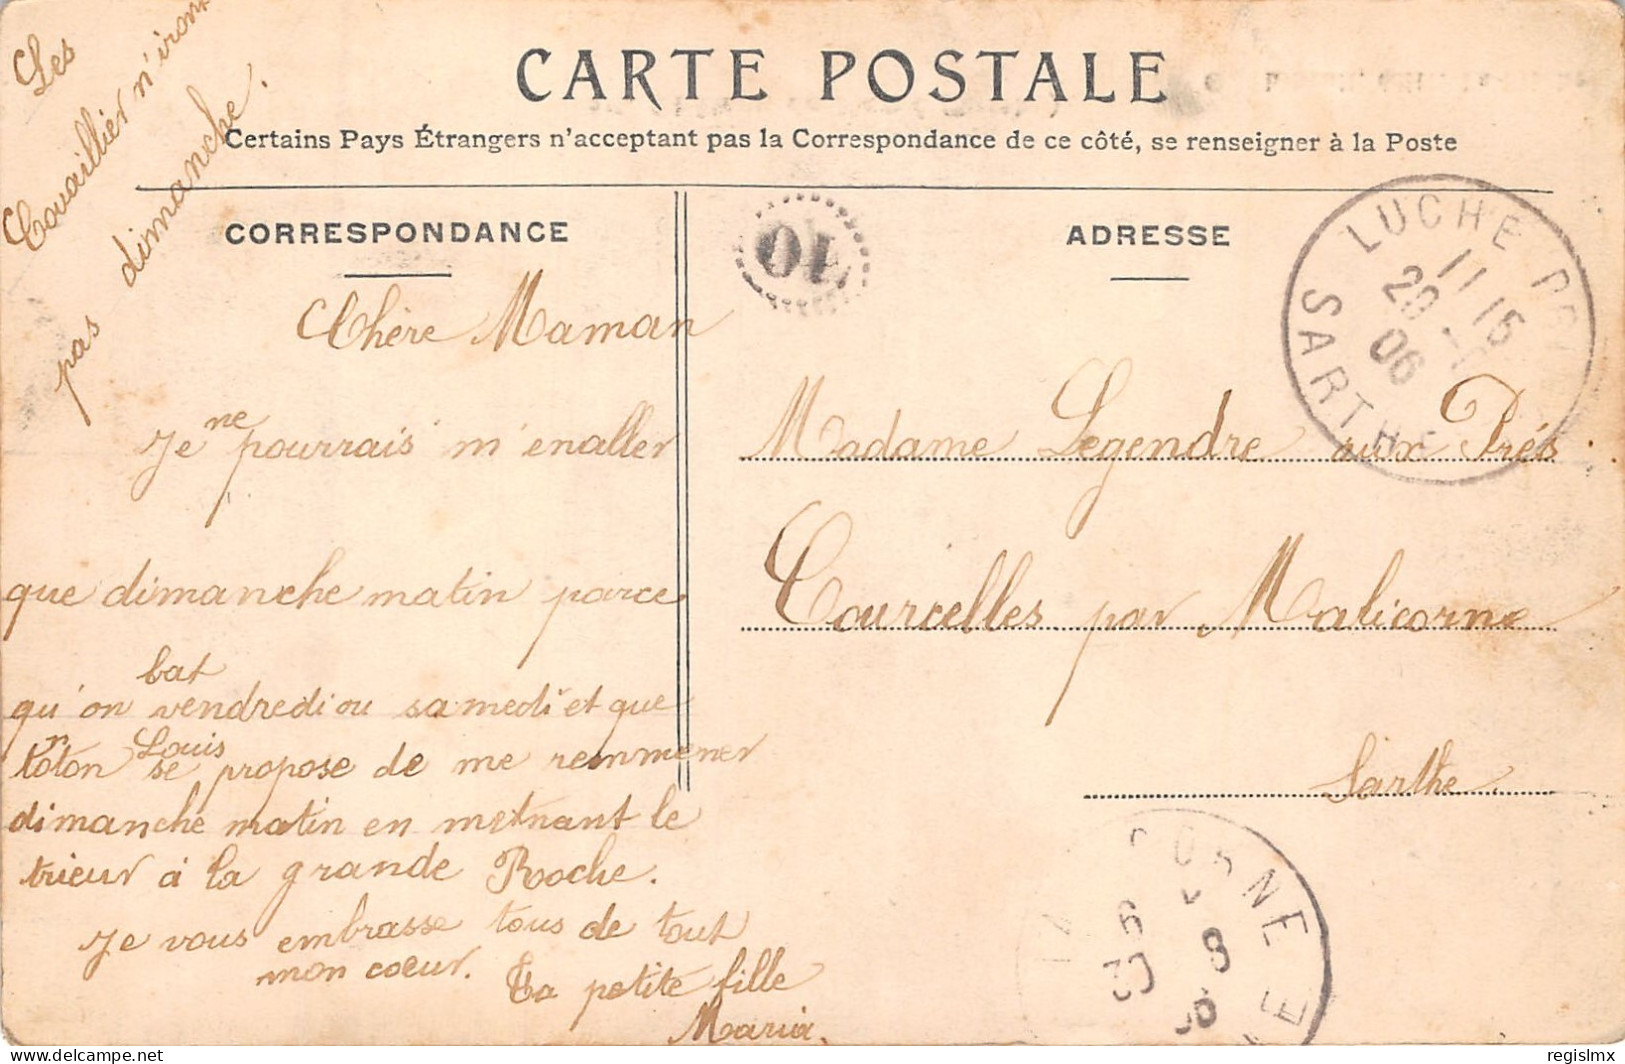 Les
Couaillier n'iront
pas dimanche.
CARTE POSTALE
Certains Pays Étrangers n'acceptant pas la Correspondance de ce côté, se renseigner à la Poste
CORRESPONDANCE
Chère Maman
Je ne pourrais m'enaller
que dimanche matin parce
qu'on bat vendredi ou samedi et que
tonton Louis se propose de me remmener
dimanche matin en metnant le
trieur à la grande Roche.
Je vous embrasse tous de tout
mon coeur. Ta petite fille
Maria.
OL
ADRESSE
LUCHE
SARTHE
11 15
20
06
Madame Legendre aux Prés.
Courcelles par Malicorne
Sarthe.
ORNE
6
8
30
06
E
regislmx
delcampe.net